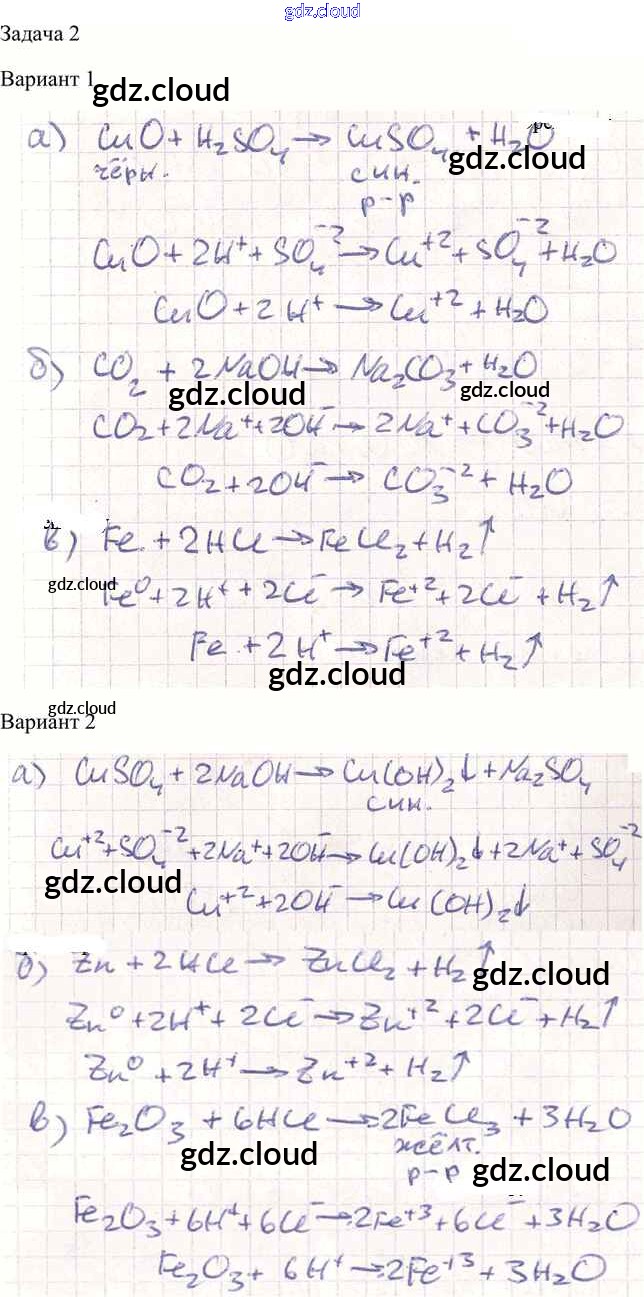 gdz.cloud
Задача 2
Вариант 1
gdz.cloud
а) CuO + H₂SO₄ → CuSO₄ + H₂O
чёрн. син. gdz.cloud
р-р
CuO + 2H⁺ + SO₄⁻² → Cu⁺² + SO₄⁻² + H₂O
CuO + 2H⁺ → Cu⁺² + H₂O
б) CO₂ + 2NaOH → Na₂CO₃ + H₂O
gdz.cloud gdz.cloud
CO₂ + 2Na⁺ + 2OH⁻ → 2Na⁺ + CO₃⁻² + H₂O
CO₂ + 2OH⁻ → CO₃⁻² + H₂O
в) Fe + 2HCl → FeCl₂ + H₂↑
gdz.cloud
Fe⁰ + 2H⁺ + 2Cl⁻ → Fe⁺² + 2Cl⁻ + H₂↑
Fe + 2H⁺ → Fe⁺² + H₂↑
gdz.cloud
gdz.cloud
Вариант 2
а) CuSO₄ + 2NaOH → Cu(OH)₂↓ + Na₂SO₄
син.
Cu⁺² + SO₄⁻² + 2Na⁺ + 2OH⁻ → Cu(OH)₂↓ + 2Na⁺ + SO₄⁻²
gdz.cloud
Cu⁺² + 2OH⁻ → Cu(OH)₂↓
б) Zn + 2HCl → ZnCl₂ + H₂↑
gdz.cloud
Zn⁰ + 2H⁺ + 2Cl⁻ → Zn⁺² + 2Cl⁻ + H₂↑
Zn⁰ + 2H⁺ → Zn⁺² + H₂↑
в) Fe₂O₃ + 6HCl → 2FeCl₃ + 3H₂O
gdz.cloud жёлт.
р-р gdz.cloud
Fe₂O₃ + 6H⁺ + 6Cl⁻ → 2Fe⁺³ + 6Cl⁻ + 3H₂O
Fe₂O₃ + 6H⁺ → 2Fe⁺³ + 3H₂O